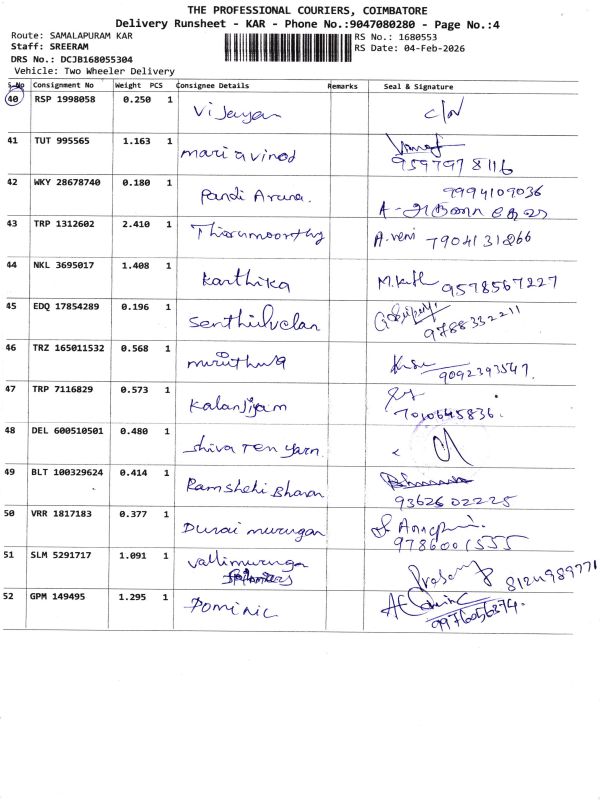 THE PROFESSIONAL COURIERS, COIMBATORE
Delivery Runsheet - KAR - Phone No.:9047080280 - Page No.:4
Route: SAMALAPURAM KAR
RS No.: 1680553
Staff: SREERAM
RS Date: 04-Feb-2026
DRS No.: DCJB168055304
Vehicle: Two Wheeler Delivery
S.No Consignment No Weight PCS Consignee Details Remarks Seal & Signature
40 RSP 1998058 0.250 1 Vijayan
41 TUT 995565 1.163 1 mari avinod
9597978116
42 WKY 28678740 0.180 1 Pandi Aruna. 9994109036
43 TRP 1312602 2.410 1 Thirumoorthy A.veni 7904131866
44 NKL 3695017 1.408 1 Karthika 9578567227
45 EDQ 17854289 0.196 1 Senthilvelan
9788332211
46 TRZ 165011532 0.568 1
9092393547.
47 TRP 7116829 0.573 1 Kalanjiyam
7010645836.
48 DEL 600510501 0.480 1 Shiva Ten yarn.
49 BLT 100329624 0.414 1 Ramshehi Bhavan
9362602225
50 VRR 1817183 0.377 1 Durai murugan
9786001555
51 SLM 5291717 1.091 1 Vallimuruga
8124989771
52 GPM 149495 1.295 1 Dominic
9976056874.